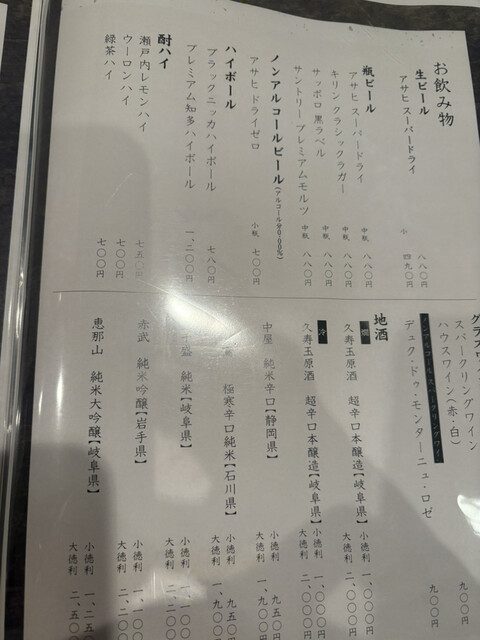 お飲み物
生ビール
アサヒ スーパードライ
八八〇円
小 四九〇円
瓶ビール
アサヒ スーパードライ 中瓶 八八〇円
キリン クラシックラガー 中瓶 八八〇円
サッポロ 黒ラベル 中瓶 八八〇円
サントリー プレミアムモルツ 中瓶 八八〇円
ノンアルコールビール(アルコール分0.00%)
アサヒ ドライゼロ 小瓶 七〇〇円
ハイボール
ブラックニッカハイボール 七八〇円
プレミアム知多ハイボール 一、二〇〇円
酎ハイ
瀬戸内レモンハイ 七五〇円
ウーロンハイ 七〇〇円
緑茶ハイ 七〇〇円
スパークリングワイン 九〇〇円
ハウスワイン(赤・白)
デュク・ドゥ・モンターニュ・ロゼ 九〇〇円
地酒
久寿玉原酒 超辛口本醸造【岐阜県】
小徳利 一、〇〇〇円
大徳利 二、〇〇〇円
冷
久寿玉原酒 超辛口本醸造【岐阜県】
小徳利 一、〇〇〇円
大徳利 二、〇〇〇円
中屋 純米辛口【静岡県】
小徳利 九五〇円
大徳利 一、九〇〇円
極寒辛口純米【石川県】
小徳利 九五〇円
大徳利 一、九〇〇円
盛 純米【岐阜県】
小徳利 一、一〇〇円
大徳利 二、二〇〇円
赤武 純米吟醸【岩手県】
小徳利 一、一〇〇円
大徳利 二、二〇〇円
恵那山 純米大吟醸【岐阜県】
小徳利 一、二五〇円
大徳利 二、五〇〇円